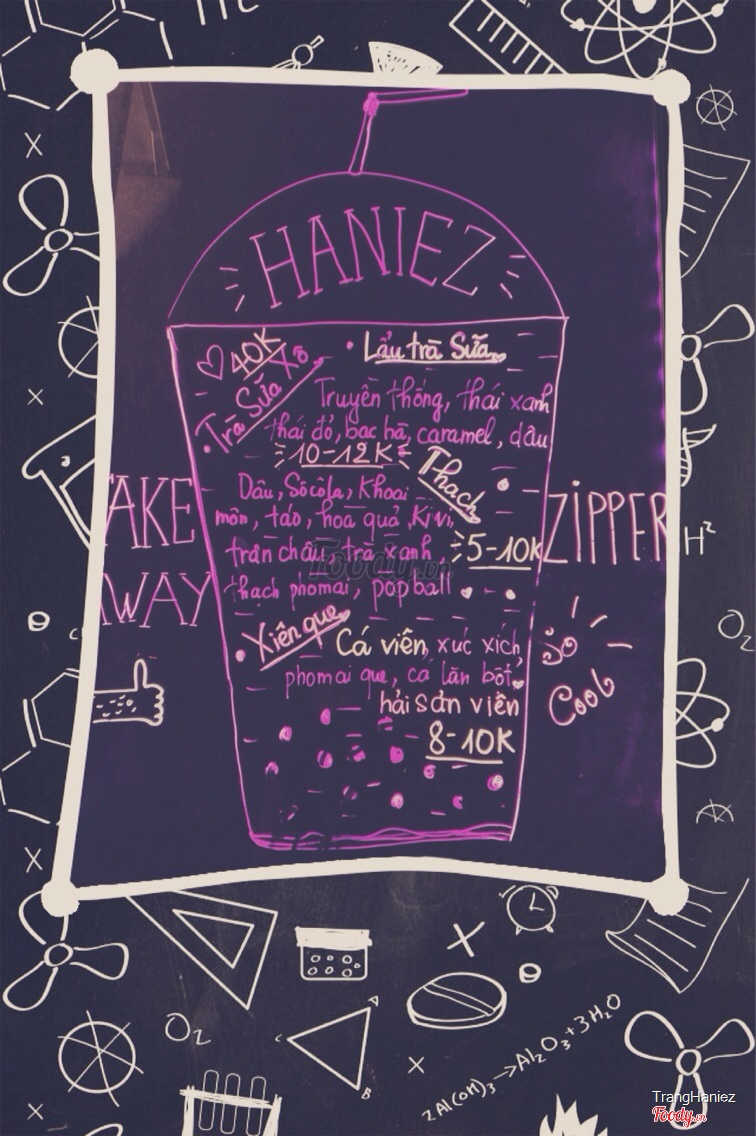 HANIEZ
40K
Trà Sữa Xô
Lẩu trà Sữa
Truyền thống, thái xanh
thái đỏ, bạc hà, caramel, dâu
10-12K
Thạch
Dâu, Sôcôla, Khoai
môn, táo, hoa quả, Kiwi,
trân châu, trà xanh,
5-10K
thạch phomai, popball
AKE
WAY
ZIPPER
Xiên que
Cá viên, xúc xích,
phomai que, cá lăn bột,
hải sản viên
8-10K
So
Cool
Foody.vn
H²
O₂
O₂
C
A
B
2Al(OH)₃→Al₂O₃+3H₂O
TrangHaniez
Foody.vn